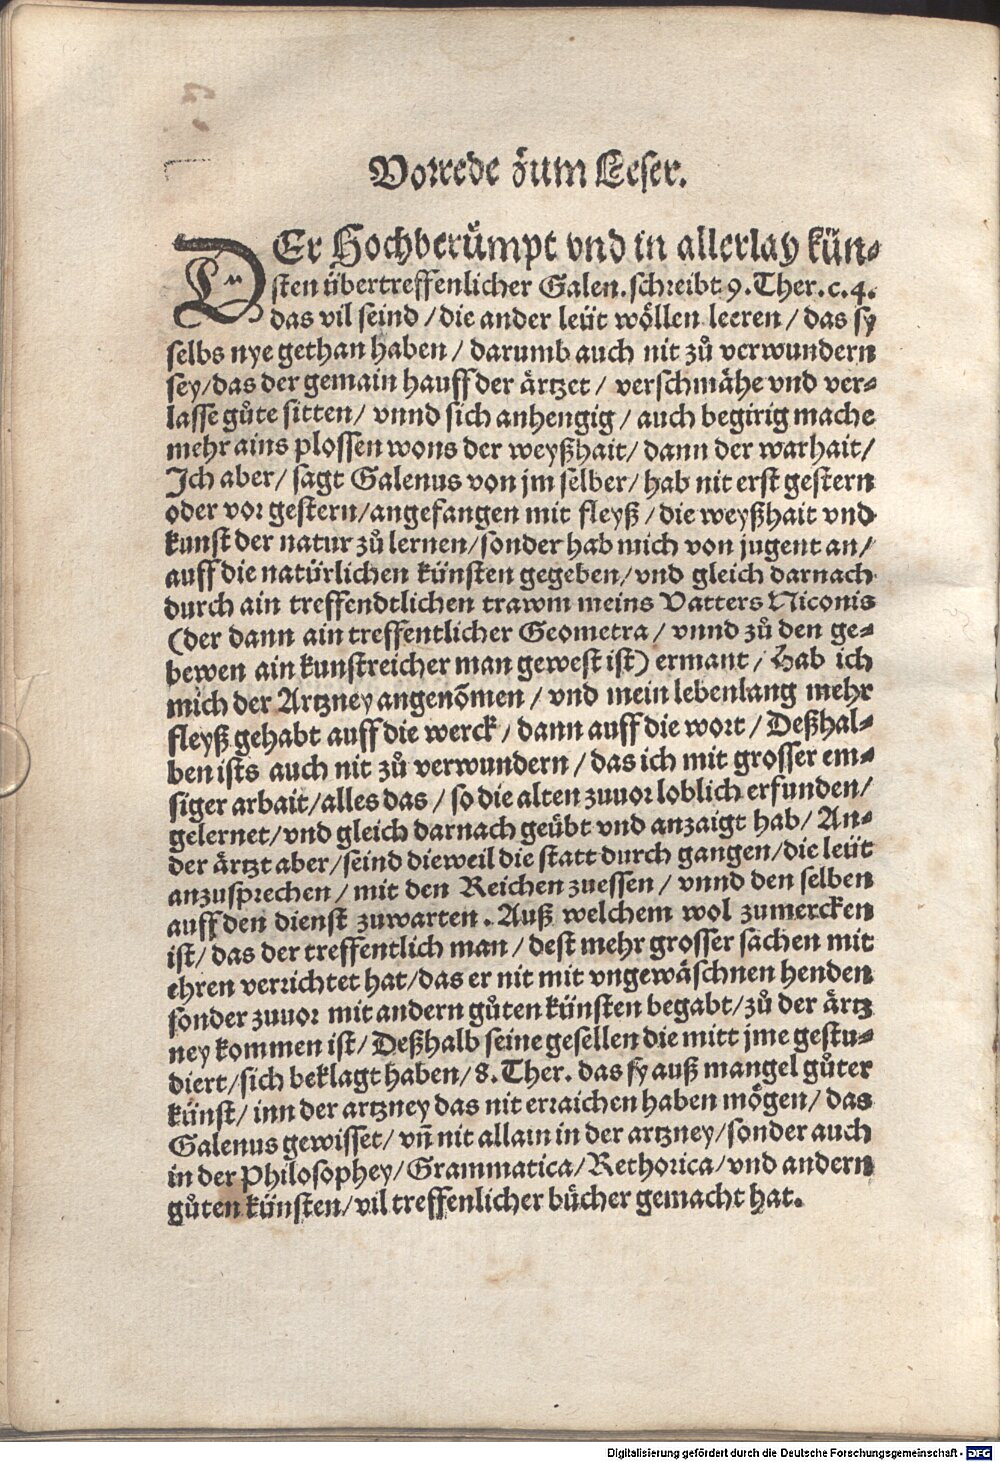 Vorrede zum Leser.
DEr Hochberümpt vnd in allerlay kün⸗
sten übertreffenlicher Galen. schreibt 9. Ther. c. 4.
das vil seind / die ander leüt wöllen leeren / das sy
selbs nye gethan haben / darumb auch nit zů verwundern
sey/das der gemain hauff der ärtzet / verschmähe vnd ver⸗
lasse gůte sitten / vnnd sich anhengig / auch begirig mache
mehr ains plossen wons der weyßhait/ dann der warhait/
Ich aber/ sagt Galenus von jm selber/ hab nit erst gestern
oder vor gestern/angefangen mit fleyß /die weyßhait vnd
kunst der natur zů lernen/sonder hab mich von jugent an/
auff die natürlichen künsten gegeben/vnd gleich darnach
durch ain treffendtlichen trawm meins Vatters Niconis
(der dann ain treffentlicher Geometra / vnnd zů den ge⸗
bewen ain kunstreicher man gewest ist) ermant / Hab ich
mich der Artzney angenõmen / vnd mein lebenlang mehr
fleyß gehabt auff die werck / dann auff die wort / Deßhal⸗
ben ists auch nit zů verwundern / das ich mit grosser em⸗
siger arbait/alles das / so die alten zuuor loblich erfunden/
gelernet/vnd gleich darnach geübt vnd anzaigt hab/ An⸗
der ärtzt aber/seind dieweil die statt durch gangen/die leüt
anzusprechen / mit den Reichen zuessen / vnnd den selben
auff den dienst zuwarten. Auß welchem wol zumercken
ist/ das der treffentlich man / dest mehr grosser sachen mit
ehren verrichtet hat/das er nit mit vngewäschnen henden
sonder zuuor mit andern gůten künsten begabt/zů der ärtz
ney kommen ist/ Deßhalb seine gesellen die mitt jme gestu⸗
diert/sich beklagt haben/8. Ther. das sy auß mangel gůter
künst/ inn der artzney das nit erraichen haben mögen/ das
Galenus gewisset/ vñ nit allain in der artzney/sonder auch
in der Philosophey/Grammatica/Rethorica/vnd andern
gůten künsten/vil treffenlicher bücher gemacht hat.
Digitalisierung gefördert durch die Deutsche Forschungsgemeinschaft - DFG